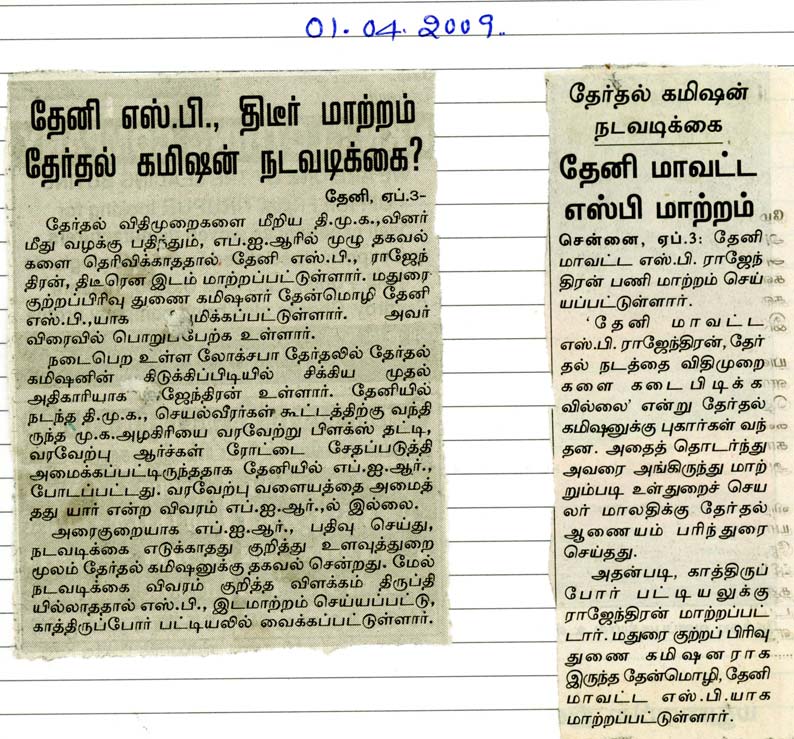 01.04.2009.
தேனி எஸ்.பி., திடீர் மாற்றம்
தேர்தல் கமிஷன் நடவடிக்கை?
தேனி, ஏப்.3-
தேர்தல் விதிமுறைகளை மீறிய தி.மு.க.,வினர்
மீது வழக்கு பதிந்தும், எப்.ஐ.ஆரில் முழு தகவல்
களை தெரிவிக்காததால் தேனி எஸ்.பி., ராஜேந்
திரன், திடீரென இடம் மாற்றப்பட்டுள்ளார். மதுரை
குற்றப்பிரிவு துணை கமிஷனர் தேன்மொழி தேனி
எஸ்.பி.,யாக மிக்கப்பட்டுள்ளார். அவர்
விரைவில் பொறுப்பேற்க உள்ளார்.
நடைபெற உள்ள லோக்சபா தேர்தலில் தேர்தல்
கமிஷனின் கிடுக்கிப்பிடியில் சிக்கிய முதல்
அதிகாரியாக ஜேந்திரன் உள்ளார். தேனியில்
நடந்த தி.மு.க., செயல்வீரர்கள் கூட்டத்திற்கு வந்தி
ருந்த மு.க.அழகிரியை வரவேற்று பிளக்ஸ் தட்டி,
வரவேற்பு ஆர்ச்கள் ரோட்டை சேதப்படுத்தி
அமைக்கப்பட்டிருந்ததாக தேனியில் எப்.ஐ.ஆர்.,
போடப்பட்டது. வரவேற்பு வளையத்தை அமைத்
தது யார் என்ற விவரம் எப்.ஐ.ஆர்.,ல் இல்லை.
அரைகுறையாக எப்.ஐ.ஆர்., பதிவு செய்து,
நடவடிக்கை எடுக்காதது குறித்து உளவுத்துறை
மூலம் தேர்தல் கமிஷனுக்கு தகவல் சென்றது. மேல்
நடவடிக்கை விவரம் குறித்த விளக்கம் திருப்தி
யில்லாததால் எஸ்.பி., இடமாற்றம் செய்யப்பட்டு,
காத்திருப்போர் பட்டியலில் வைக்கப்பட்டுள்ளார்.
தேர்தல் கமிஷன்
நடவடிக்கை
தேனி மாவட்ட
எஸ்பி மாற்றம்
சென்னை, ஏப்.3: தேனி
மாவட்ட எஸ்.பி. ராஜேந்
திரன் பணி மாற்றம் செய்
யப்பட்டுள்ளார்.
'தேனி மாவட்ட
எஸ்.பி. ராஜேந்திரன், தேர்
தல் நடத்தை விதிமுறை
களை கடைபிடிக்க
வில்லை' என்று தேர்தல்
கமிஷனுக்கு புகார்கள் வந்
தன. அதைத் தொடர்ந்து
அவரை அங்கிருந்து மாற்
றும்படி உள்துறைச் செய
லர் மாலதிக்கு தேர்தல்
ஆணையம் பரிந்துரை
செய்தது.
அதன்படி, காத்திருப்
போர் பட்டியலுக்கு
ராஜேந்திரன் மாற்றப்பட்
டார். மதுரை குற்றப் பிரிவு
துணை கமிஷனராக
இருந்த தேன்மொழி, தேனி
மாவட்ட எஸ்.பி.யாக
மாற்றப்பட்டுள்ளார்.